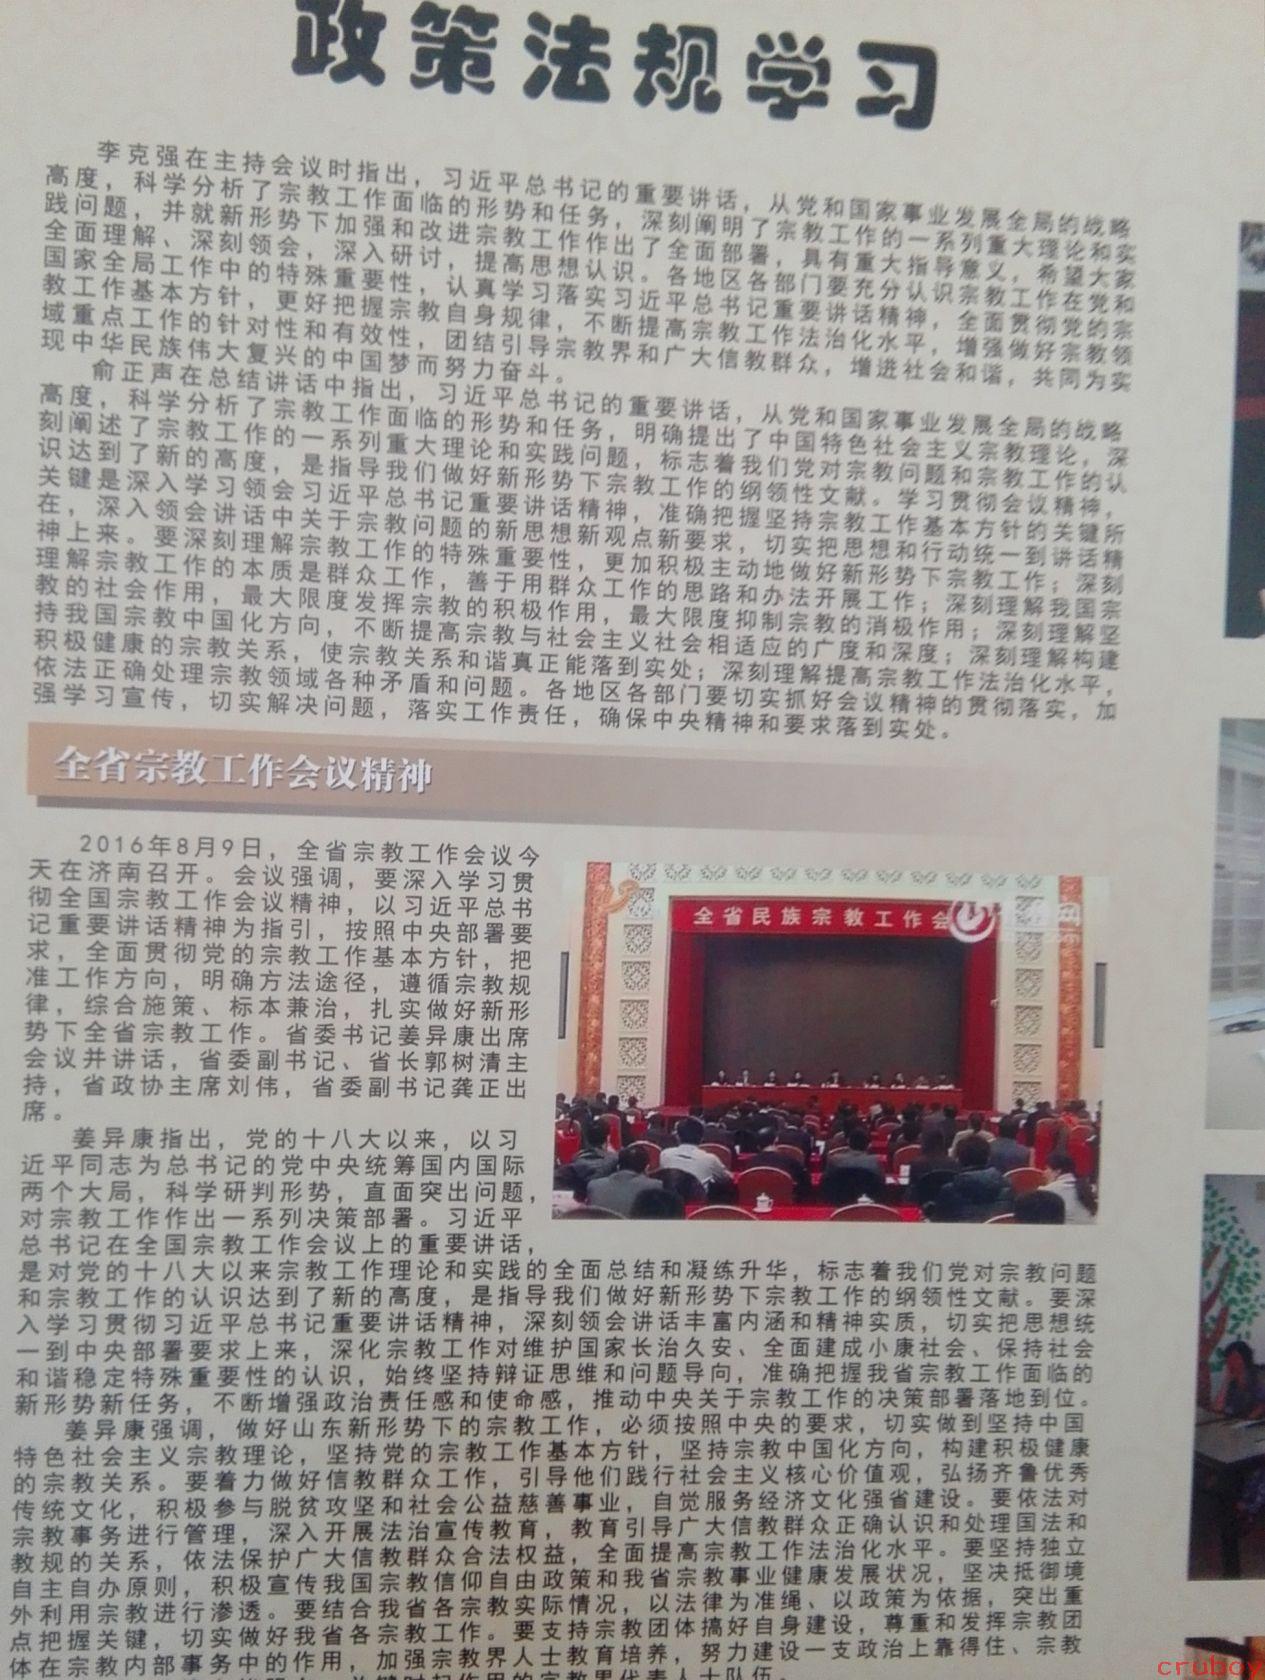 政策法规学习
李克强在主持会议时指出，习近平总书记的重要讲话，从党和国家事业发展全局的战略
高度，科学分析了宗教工作面临的形势和任务，深刻阐明了宗教工作的一系列重大理论和实
践问题，并就新形势下加强和改进宗教工作作出了全面部署，具有重大指导意义，希望大家
全面理解、深刻领会，深入研讨，提高思想认识。各地区各部门要充分认识宗教工作在党和
国家全局工作中的特殊重要性，认真学习落实习近平总书记重要讲话精神，全面贯彻党的宗
教工作基本方针，更好把握宗教自身规律，不断提高宗教工作法治化水平，增强做好宗教领
域重点工作的针对性和有效性，团结引导宗教界和广大信教群众，增进社会和谐，共同为实
现中华民族伟大复兴的中国梦而努力奋斗。
俞正声在总结讲话中指出，习近平总书记的重要讲话，从党和国家事业发展全局的战略
高度，科学分析了宗教工作面临的形势和任务，明确提出了中国特色社会主义宗教理论，深
刻阐述了宗教工作的一系列重大理论和实践问题，标志着我们党对宗教问题和宗教工作的认
识达到了新的高度，是指导我们做好新形势下宗教工作的纲领性文献。学习贯彻会议精神，
关键是深入学习领会习近平总书记重要讲话精神，准确把握坚持宗教工作基本方针的关键所
在，深入领会讲话中关于宗教问题的新思想新观点新要求，切实把思想和行动统一到讲话精
神上来。要深刻理解宗教工作的特殊重要性，更加积极主动地做好新形势下宗教工作；深刻
理解宗教工作的本质是群众工作，善于用群众工作的思路和办法开展工作；深刻理解我国宗
教的社会作用，最大限度发挥宗教的积极作用，最大限度抑制宗教的消极作用；深刻理解坚
持我国宗教中国化方向，不断提高宗教与社会主义社会相适应的广度和深度；深刻理解构建
积极健康的宗教关系，使宗教关系和谐真正能落到实处；深刻理解提高宗教工作法治化水平，
依法正确处理宗教领域各种矛盾和问题。各地区各部门要切实抓好会议精神的贯彻落实，加
强学习宣传，切实解决问题，落实工作责任，确保中央精神和要求落到实处。
全省宗教工作会议精神
2016年8月9日，全省宗教工作会议今
天在济南召开。会议强调，要深入学习贯
彻全国宗教工作会议精神，以习近平总书
记重要讲话精神为指引，按照中央部署要
求，全面贯彻党的宗教工作基本方针，把
准工作方向，明确方法途径，遵循宗教规
律，综合施策、标本兼治，扎实做好新形
势下全省宗教工作。省委书记姜异康出席
会议并讲话，省委副书记、省长郭树清主
持，省政协主席刘伟，省委副书记龚正出
席。
全省民族宗教工作会
姜异康指出，党的十八大以来，以习
近平同志为总书记的党中央统筹国内国际
两个大局，科学研判形势，直面突出问题，
对宗教工作作出一系列决策部署。习近平
总书记在全国宗教工作会议上的重要讲话，
是对党的十八大以来宗教工作理论和实践的全面总结和凝练升华，标志着我们党对宗教问题
和宗教工作的认识达到了新的高度，是指导我们做好新形势下宗教工作的纲领性文献。要深
入学习贯彻习近平总书记重要讲话精神，深刻领会讲话丰富内涵和精神实质，切实把思想统
一到中央部署要求上来，深化宗教工作对维护国家长治久安、全面建成小康社会、保持社会
和谐稳定特殊重要性的认识，始终坚持辩证思维和问题导向，准确把握我省宗教工作面临的
新形势新任务，不断增强政治责任感和使命感，推动中央关于宗教工作的决策部署落地到位。
姜异康强调，做好山东新形势下的宗教工作，必须按照中央的要求，切实做到坚持中国
特色社会主义宗教理论，坚持党的宗教工作基本方针，坚持宗教中国化方向，构建积极健康
的宗教关系。要着力做好信教群众工作，引导他们践行社会主义核心价值观，弘扬齐鲁优秀
传统文化，积极参与脱贫攻坚和社会公益慈善事业，自觉服务经济文化强省建设。要依法对
宗教事务进行管理，深入开展法治宣传教育，教育引导广大信教群众正确认识和处理国法和
教规的关系，依法保护广大信教群众合法权益，全面提高宗教工作法治化水平。要坚持独立
自主自办原则，积极宣传我国宗教信仰自由政策和我省宗教事业健康发展状况，坚决抵御境
外利用宗教进行渗透。要结合我省各宗教实际情况，以法律为准绳、以政策为依据，突出重
点把握关键，切实做好我省各宗教工作。要支持宗教团体搞好自身建设，尊重和发挥宗教团
体在宗教内部事务中的作用，加强宗教界人士教育培养，努力建设一支政治上靠得住、宗教
关键时起作用的宗教界代表人士队伍。
cruboy